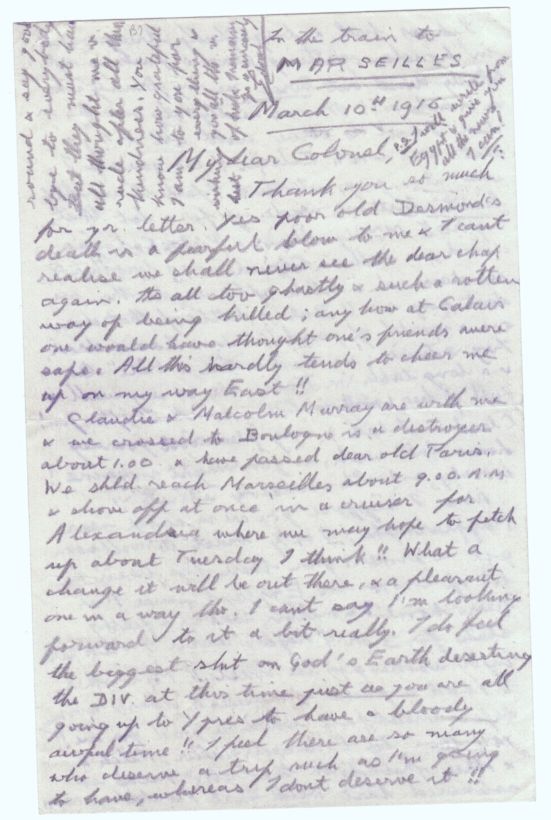 In the train to
MARSEILLES
March 10th 1916
My dear Colonel,
Thank you so much
for yr. letter. Yes poor old Desmond's
death is a fearful blow to me & I cant
realise we shall never see the dear chap
again. Its all too ghastly & such a rotten
way of being killed; any how at Calais
one would have thought one's friends were
safe. All this hardly tends to cheer me
up on my way East!!
Claudie & Malcolm Murray are with me
& we crossed to Boulogne in a destroyer
about 1.00 & have passed dear old Paris.
We shld reach Marseilles about 9.00 A.M
& shove off at once in a cruiser for
Alexandria where we may hope to fetch
up about Tuesday I think!! What a
change it will be out there, & a pleasant
one in a way tho. I cant say I'm looking
forward to it a bit really. I do feel
the biggest shit on God's Earth deserting
the DIV. at this time just as you are all
going up to Ypres to have a bloody
awful time!! I feel there are so many
who deserve a trip such as I'm going
to have, whereas I dont deserve it!!
round & say good
bye to everybody
But they must have
all thought me v
rude after all their
kindness. You
know how grateful
I am to you for
everything &
you all the
best of luck
P.S. I will write from
Egypt & give you
all the news
I can!